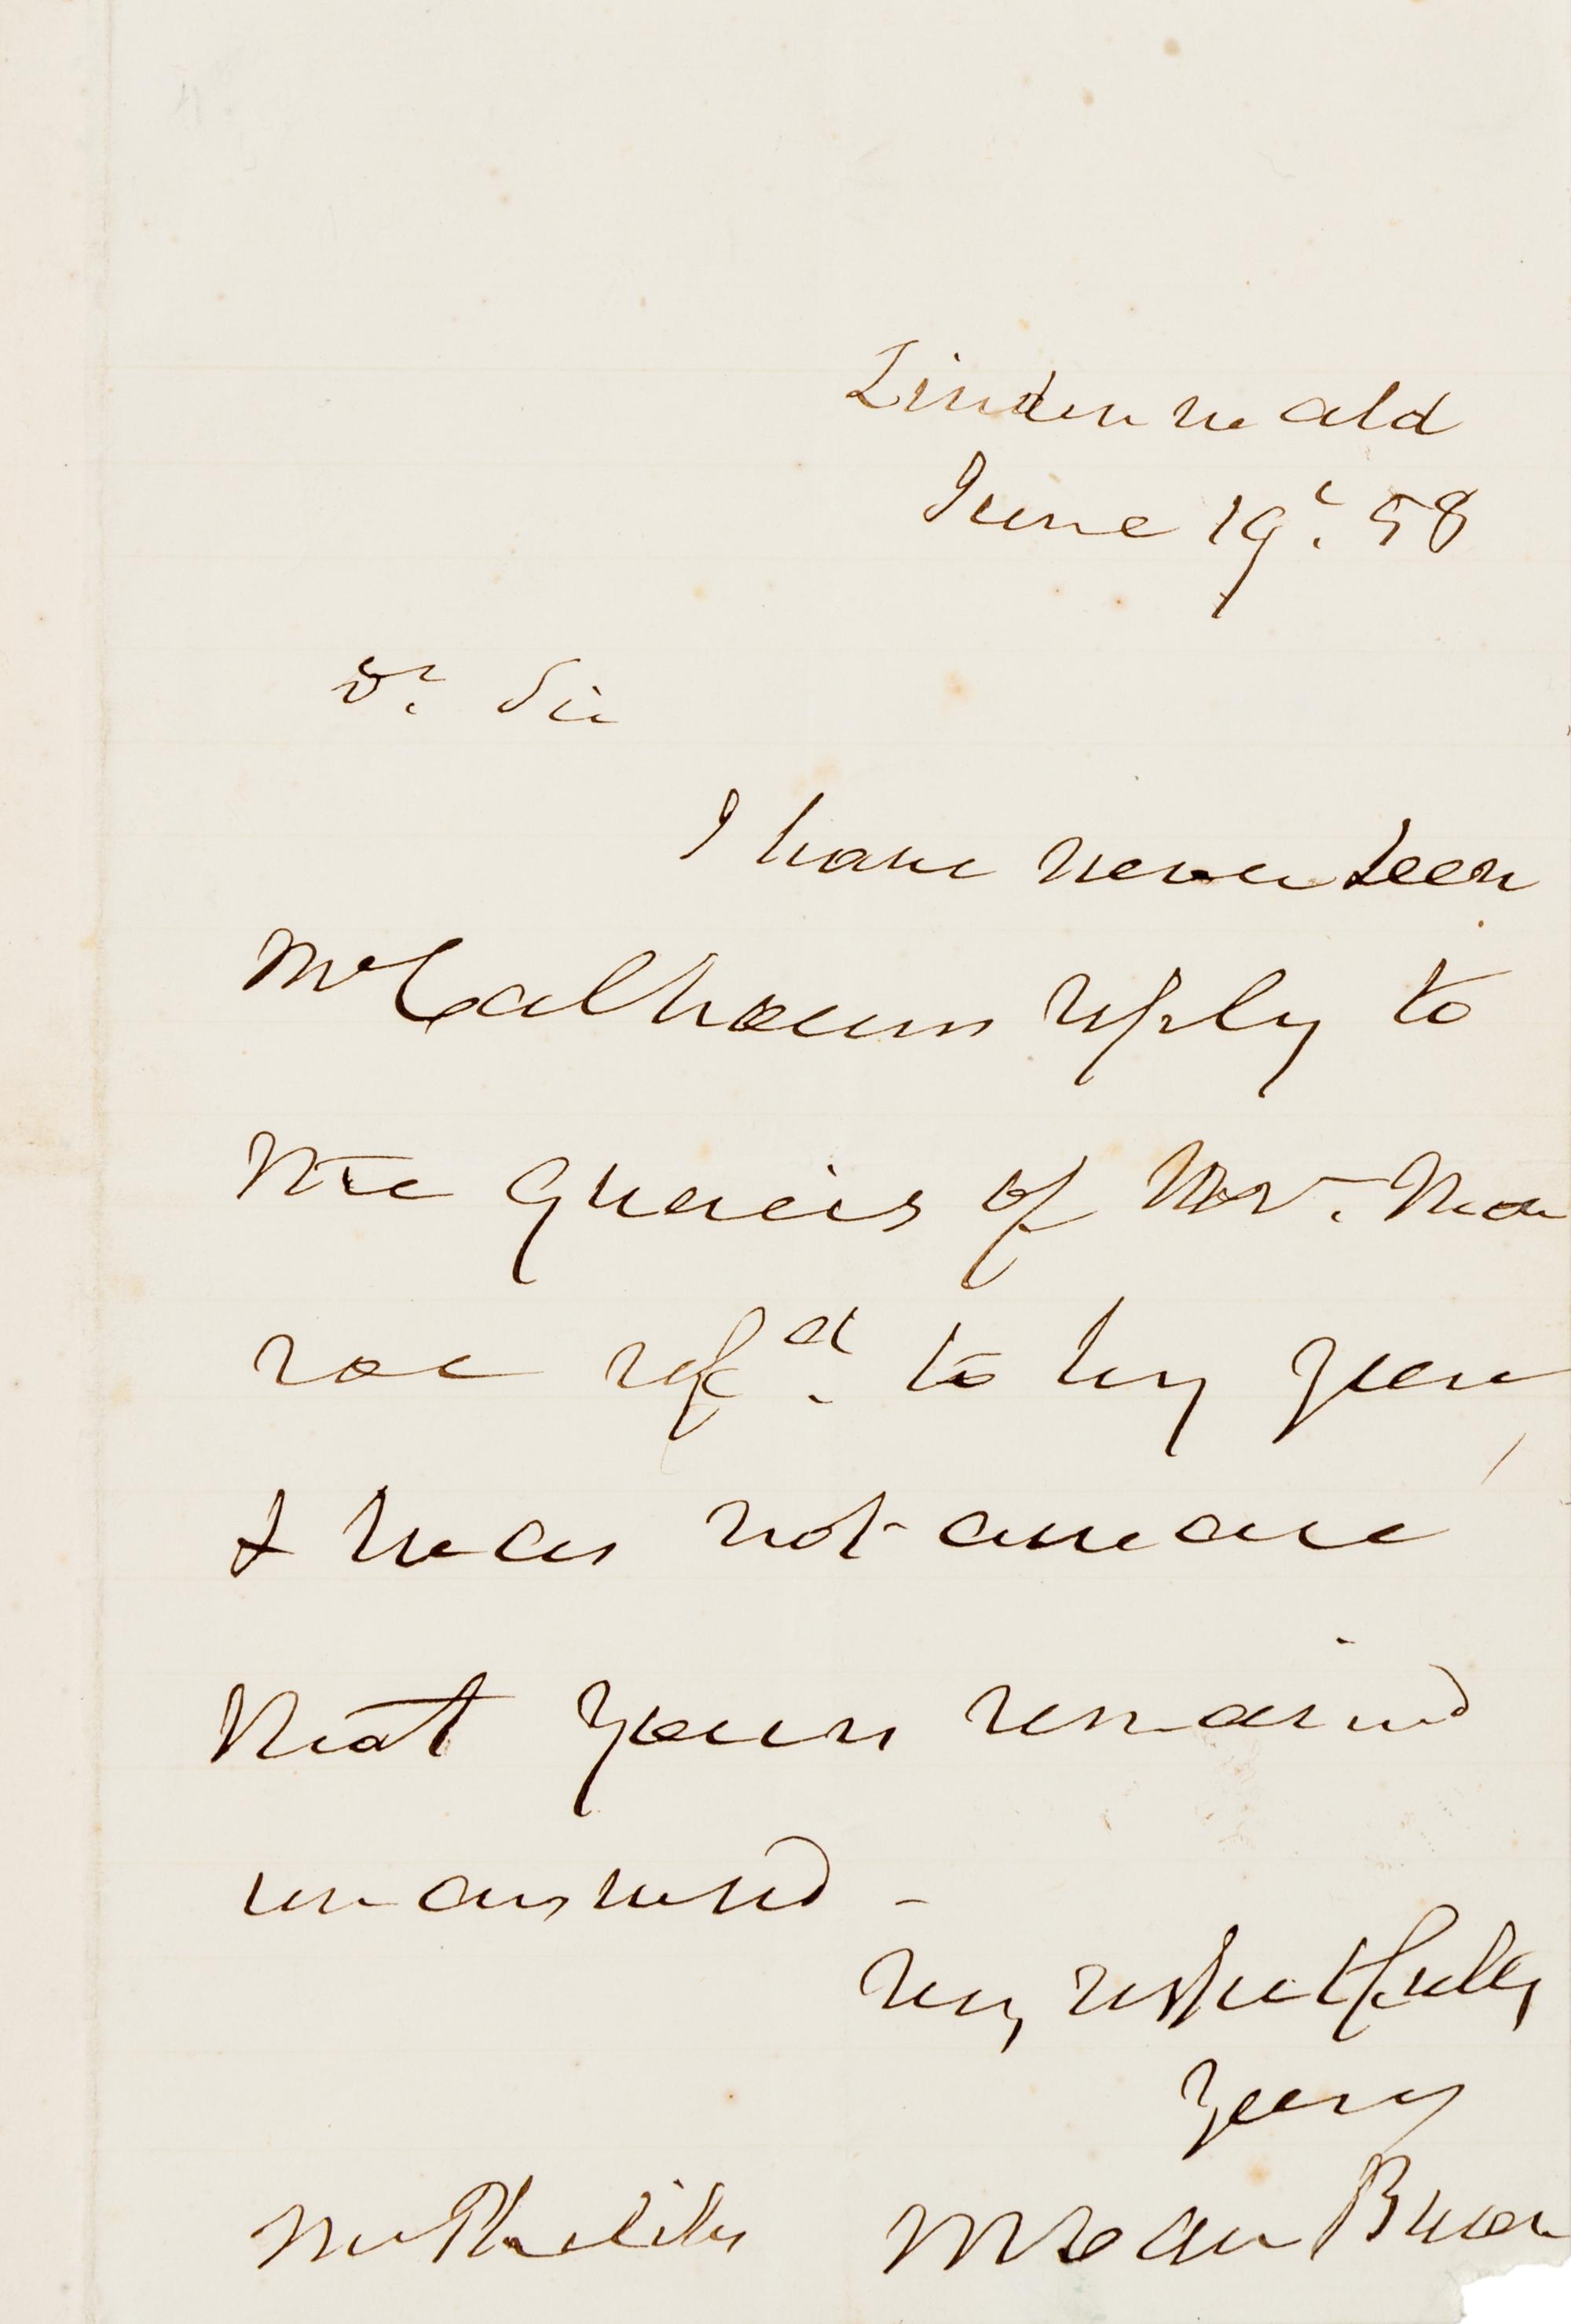 Lindenwald
June 19t. 58
Dr. Sir
I have never seen
Mr Calhouns reply to
the queries of Mr. Mon
roe refd. to by you,
& was not aware
that yours remained
unanswered -
Very respectfully
Yours
M Van Buren